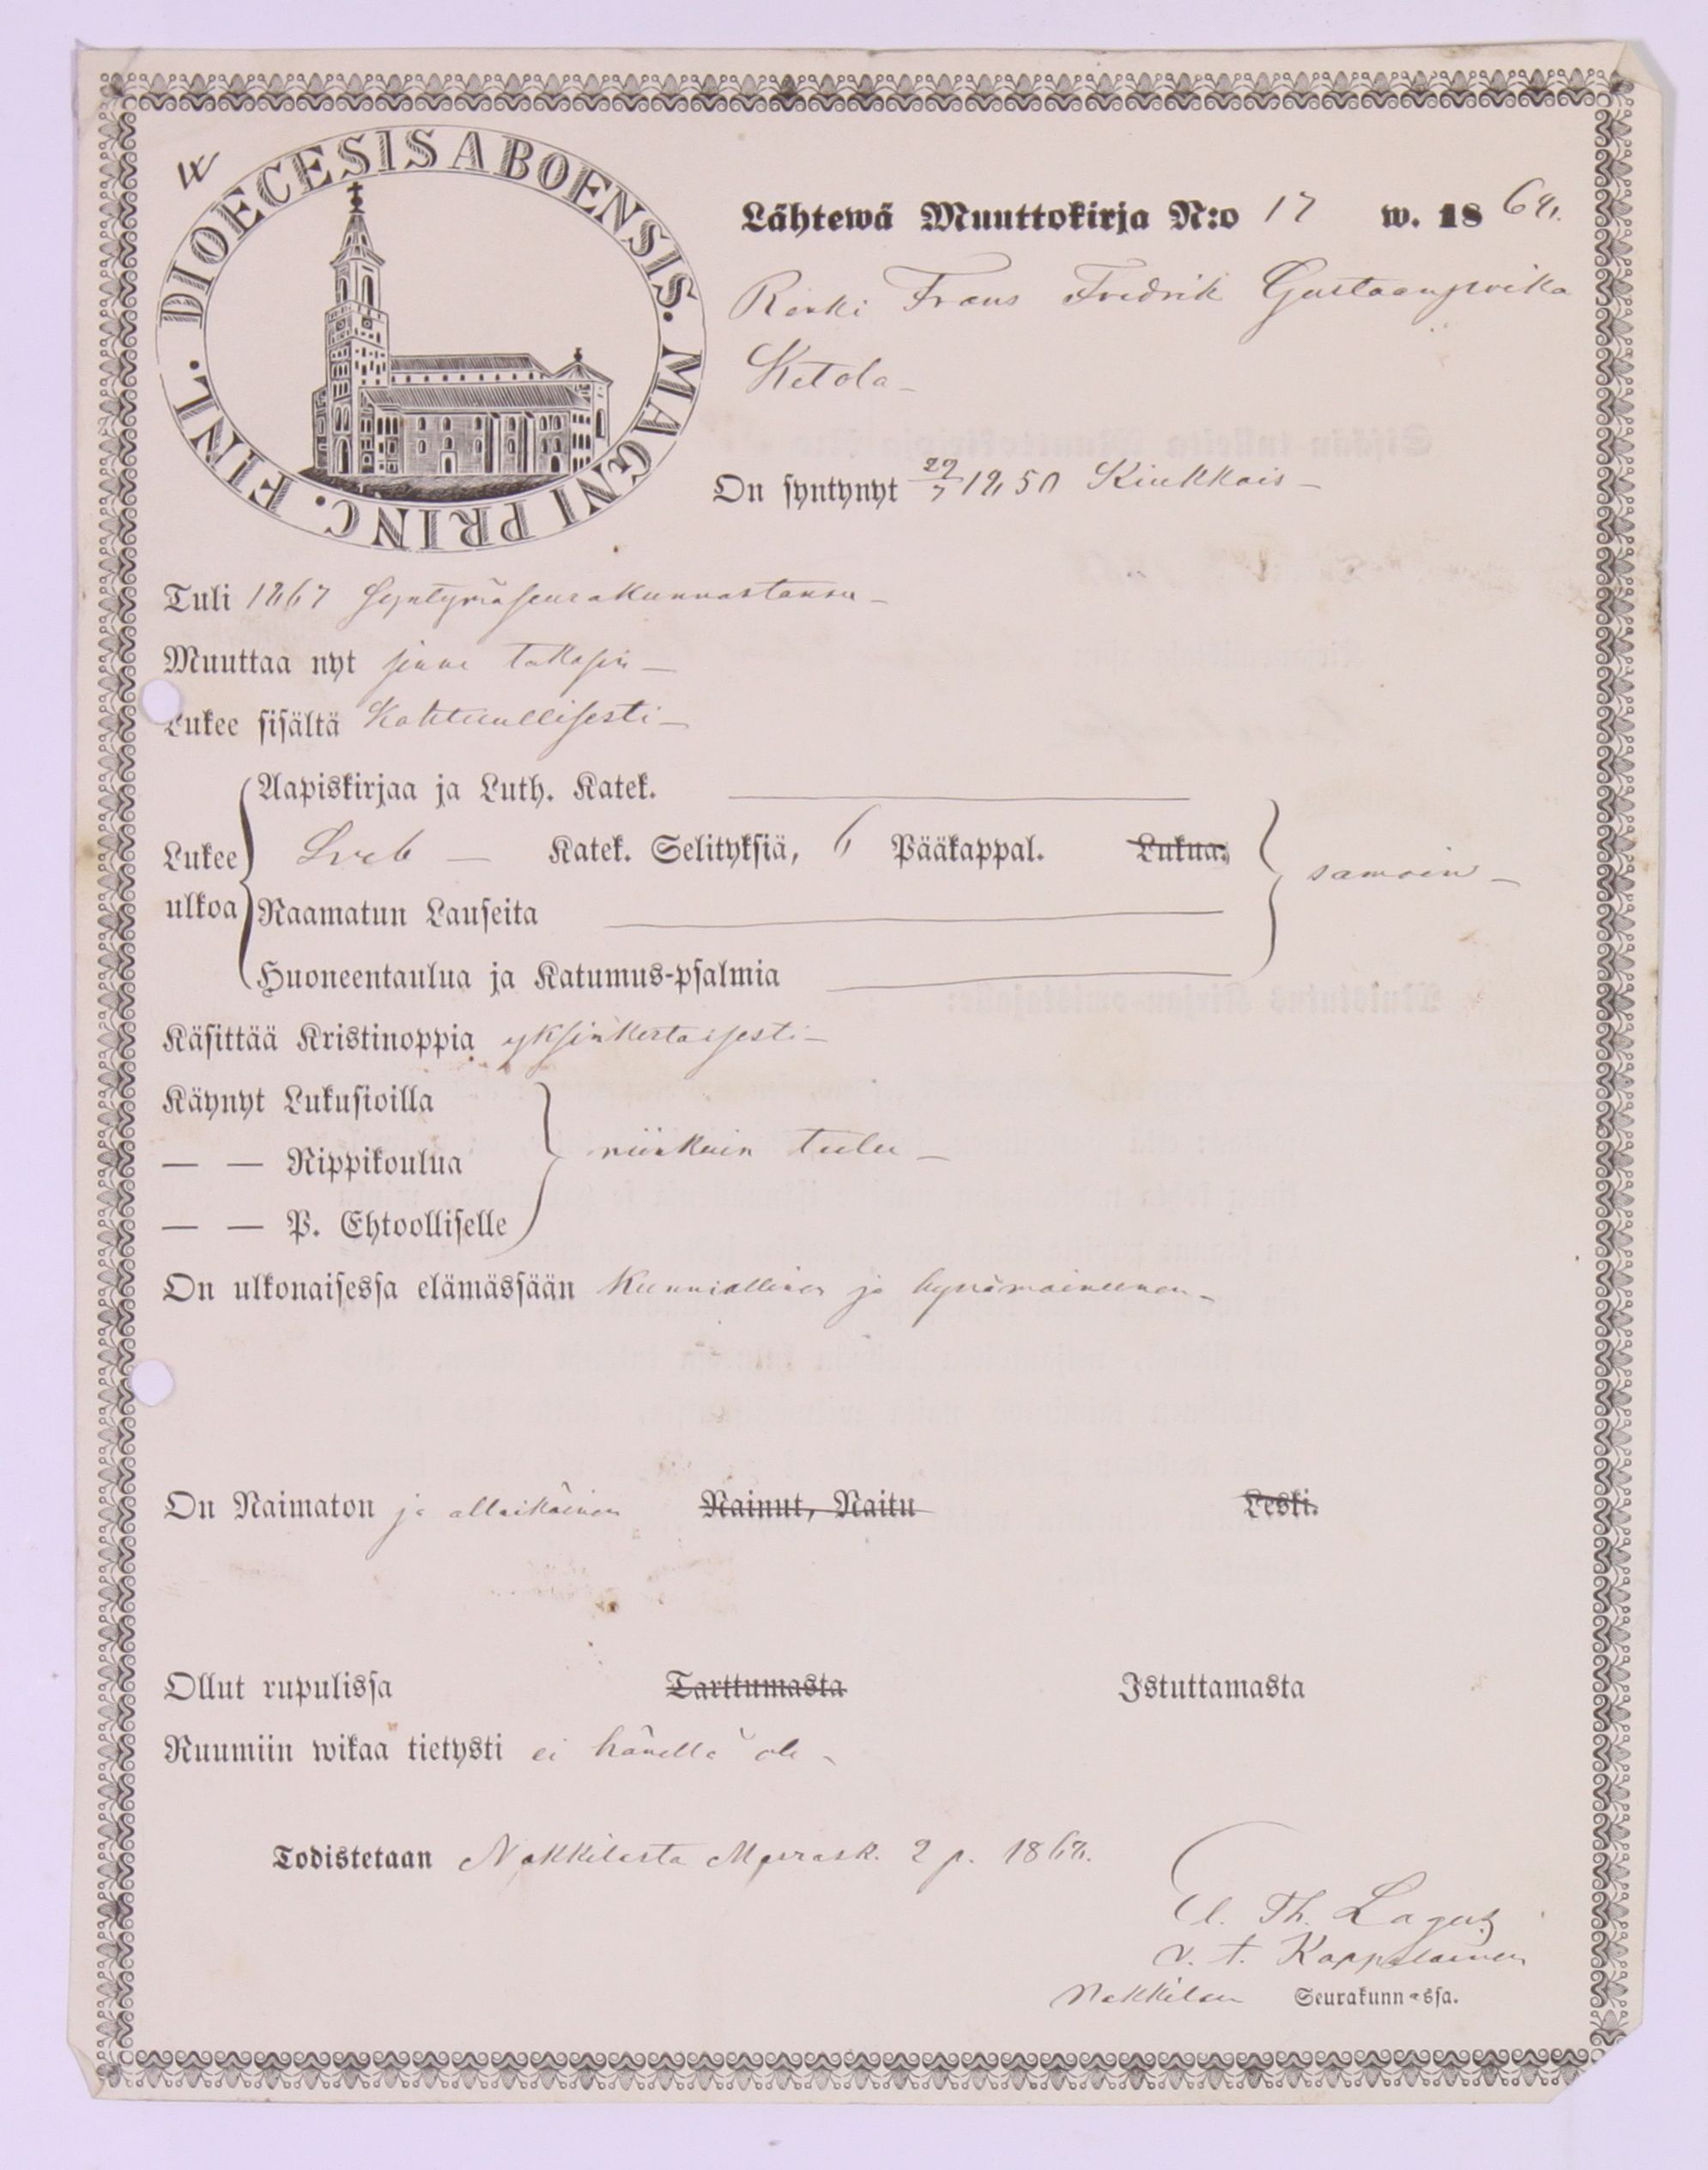 DIOECESIS ABOENSIS. MAGNI PRINC. FINL.
Lähtewä Muuttokirja N:o 17 w. 1868.
Renki Frans Fredrik Gustaanpoika
Ketola –
On syntynyt 29/7 1850 Kiukkais –
Tuli 1867 syntymäseurakunnastansa –
Muuttaa nyt sinne takasin –
Lukee sisältä Kohtuullisesti –
Aapiskirjaa ja Luth. Katek.
Lukee ulkoa Sveb – Katek. Selityksiä, 6 Pääkappal. Lukua. samoin –
Raamatun Lauseita
Huoneentaulua ja Katumus-psalmia
Käsittää Kristinoppia yksinkertaisesti –
Käynyt Lukusioilla
— — Rippikoulua niinkuin tulee –
— — P. Ehtoolliselle
On ulkonaisessa elämässään Kunniallinen ja hyvämaineinen –
On Naimaton ja allaikäinen Nainut, Naitu Leski.
Ollut rupulissa Tarttumasta Istuttamasta
Ruumiin wikaa tietysti ei hänellä ole –
Todistetaan Nakkilasta Marrask. 2 p. 1868.
Th. Lagus
v. t. Kappalainen
Nakkilan Seurakunnassa.